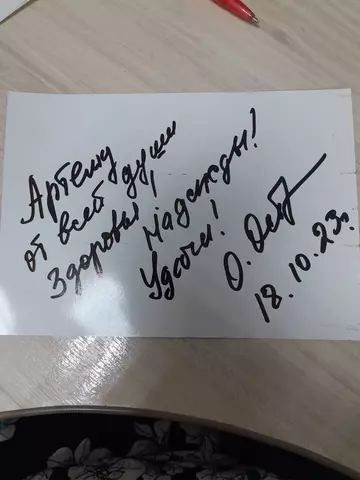 Артему
от всей души
Здоровья! Надежды!
Удачи!
О.
18.10.23г.